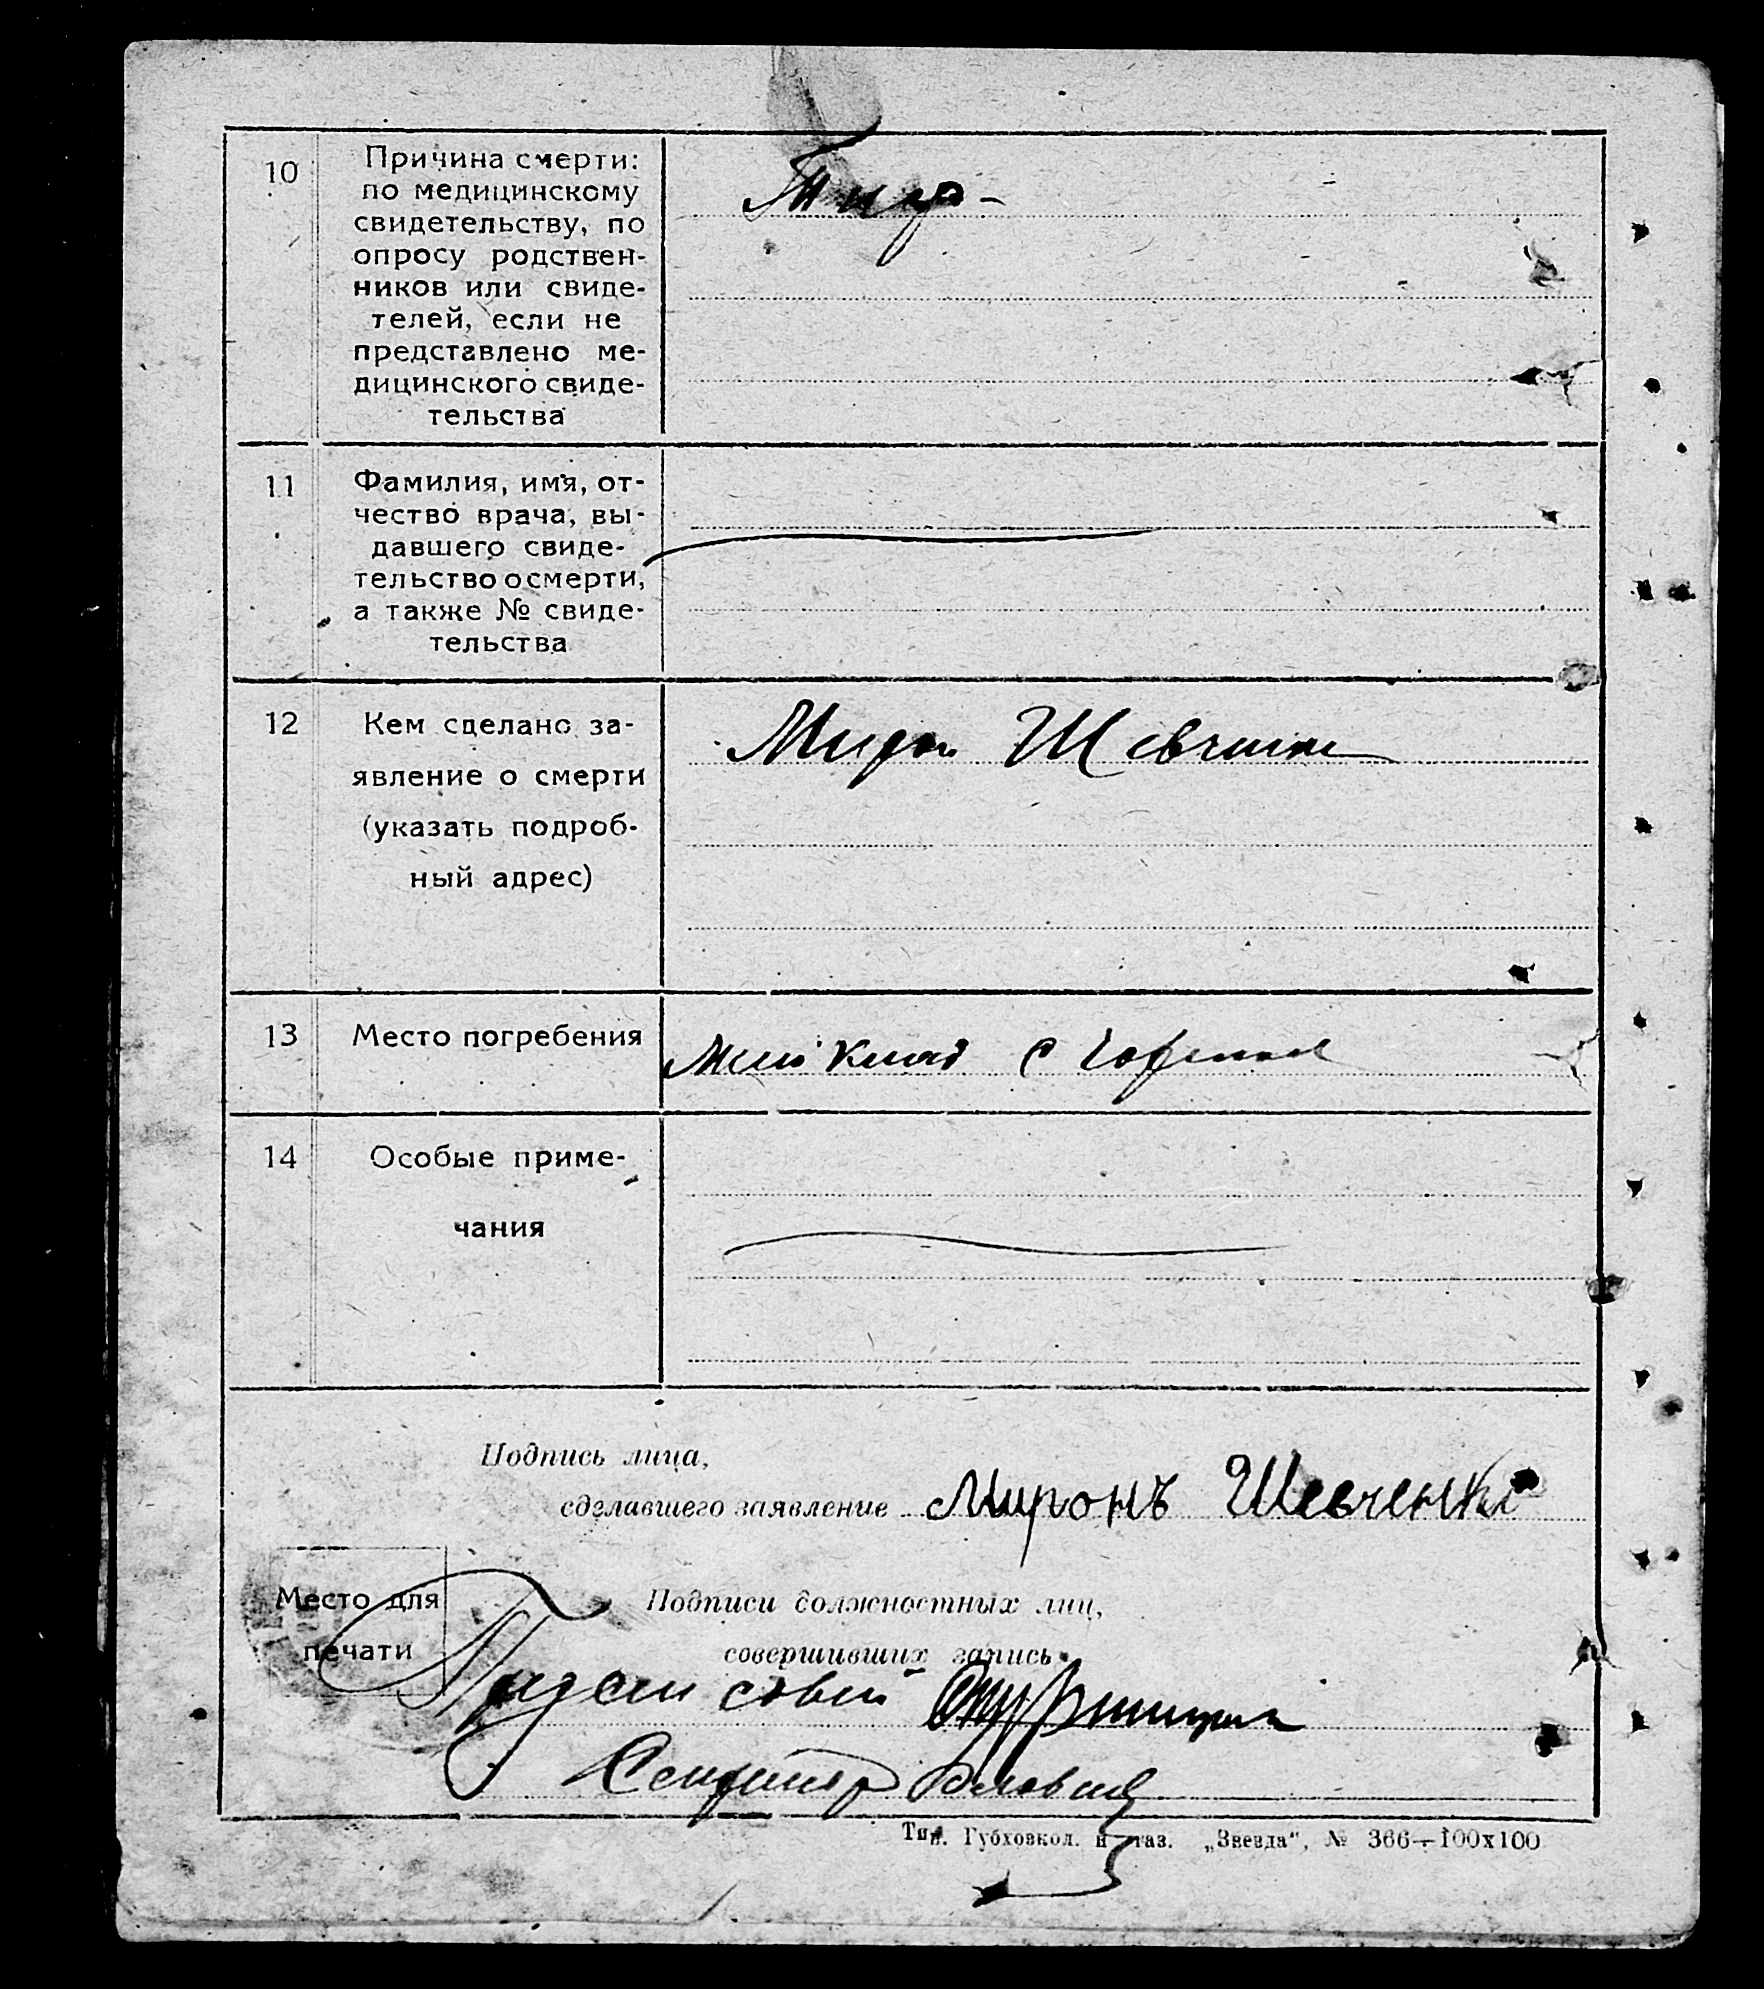 10
Причина смерти:
по медицинскому
свидетельству, по
опросу родствен-
ников или свиде-
телей, если не
представлено ме-
дицинского свиде-
тельства
11
Фамилия, имя, от-
чество врача, вы-
давшего свиде-
тельство о смерти,
а также № свиде-
тельства
12
Кем сделано за-
явление о смерти
(указать подроб-
ный адрес)
Мирон Шевченко
13
Место погребения
14
Особые приме-
чания
Подпись лица,
сделавшего заявление Миронъ Шевченко
Место для
печати
Подписи должностных лиц,
совершивших запись
Секретар
Тип. Губховкол. и газ. „Звезда“, № 366—100x100